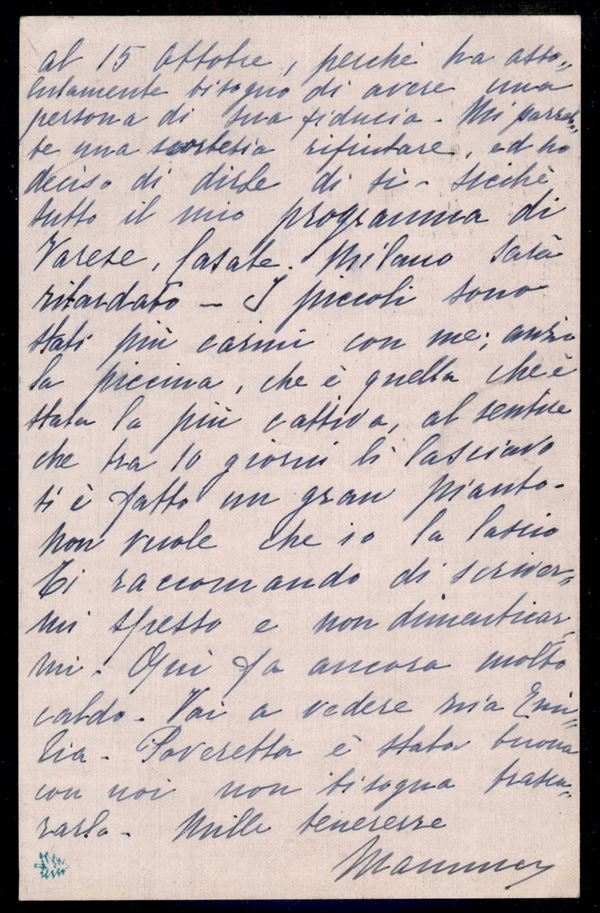 al 15 Ottobre, perchè ha asso-
lutamente bisogno di avere una
persona di sua fiducia - Mi parreb-
be una scortesia rifiutare, ed ho
deciso di dirle di sì - sicchè
tutto il mio programma di
Varese, Casate. Milano sarà
ritardato - I piccoli sono
stati più carini con me; anzi
la piccina, che è quella che è
stata la più cattiva, al sentire
che tra 10 giorni li lasciavo
si è fatto un gran pianto -
Non vuole che io la lascio
Ti raccomando di scriver-
mi spesso e non dimenticar-
mi. Qui fa ancora molto
caldo - Vai a vedere zia Emi-
lia - Poveretta è stata buona
con noi non bisogna trascu-
rarla - Mille tenerezze
Mammà